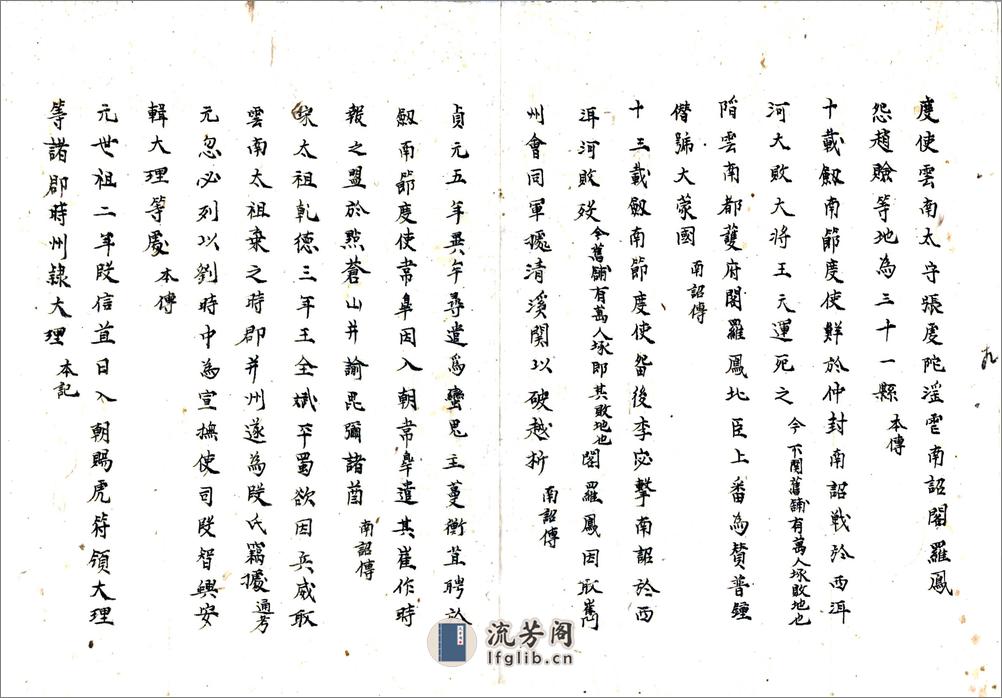 度使雲南太守張虔陀滛雲南詔閣羅鳳
怨趙贍等地為三十一縣 本傳
十載劔南節度使鮮於仲封南詔戦於西洱
河大敗大將王天運死之 今下関舊鋪有萬人塚敗地也
陷雲南都䕶府閣羅鳳北臣上番為贊普鍾
僣號大蒙國 南詔傳
十三載劔南節度使畱後李宓擊南詔於西
洱河敗殁 今舊鋪有萬人塚即其敗地也 閣羅鳳因取嶲
州會同軍㩀清溪関以破越析 南詔傳
貞元五年異牟尋遣烏蠻鬼主蔓衝苴聘於
劔南節度使常臯因入朝常臯遣其崔作時
報之盟於㸃蒼山并諭毘彌諸酋 南詔傳
宋太祖乾德三年王全斌平蜀欲因兵威取
雲南太祖棄之時郡并州遂為段氏竊㩀 通考
元忽必列以劉時中為宣撫使司段智興安
輯大理等處 本傳
元世祖二年段信苴日入朝賜虎符領大理
等諸郡時州隷大理 本記
九
流芳阁
lfglib.cn